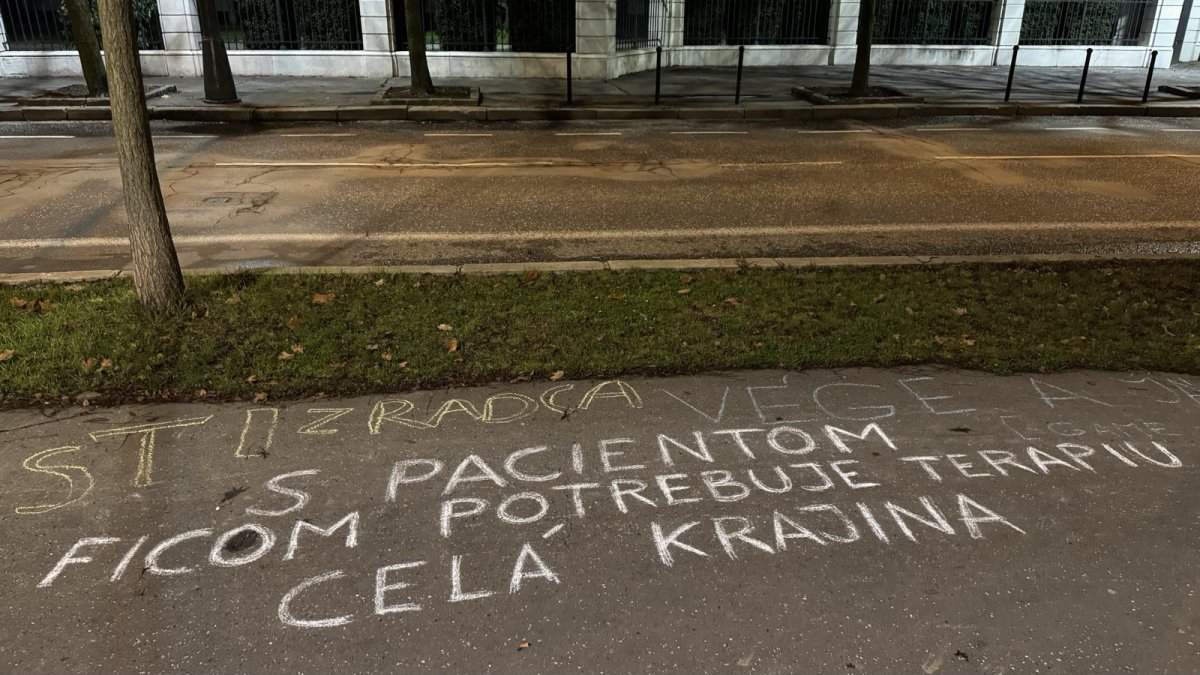 STI ZRADCA VÉGE A
S PACIENTOM
FICOM POTREBUJE TERAPIU
CELÁ KRAJINA